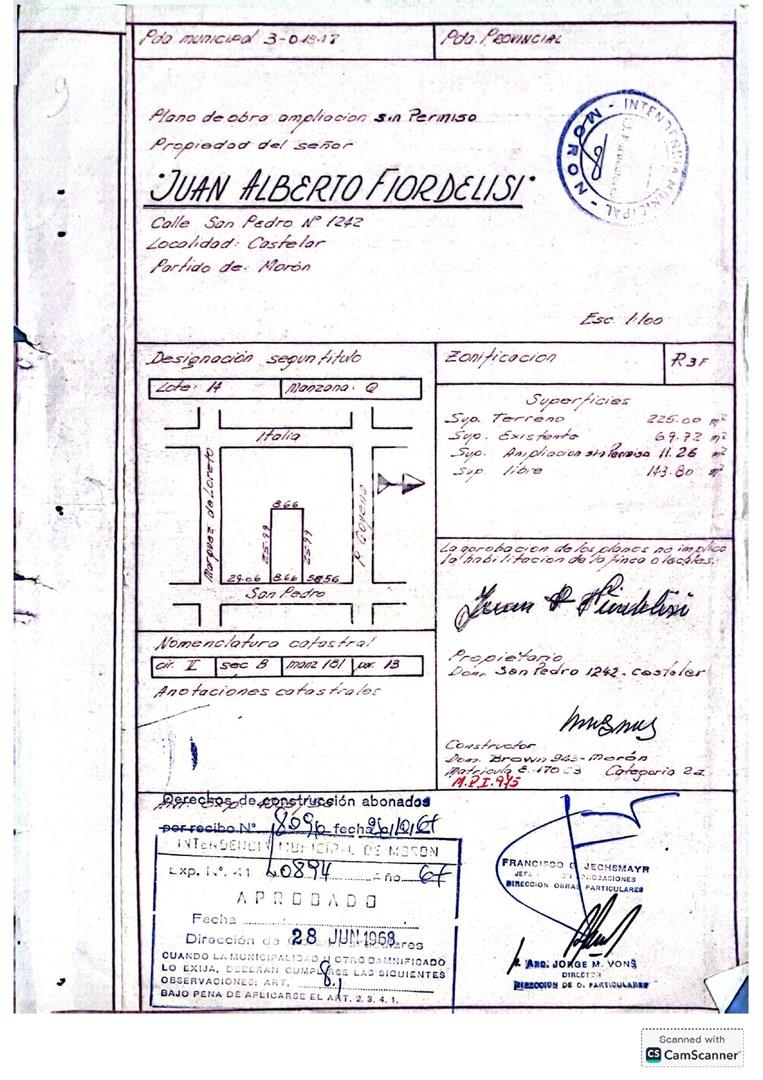 Pda municipal 3-0
Pda. PROVINCIAL
Plano de obra ampliacion sin Permiso
Propiedad del señor
"JUAN ALBERTO FIORDELISI"
Calle San Pedro Nº 1242
Localidad: Castelar
Partido de: Morón
INTENDENCIA MUNICIPAL - MORON
Esc. 1:100
Designación segun titulo
Lote: 1A
Manzana: Q
Italia
Marquez de Loreto
8.66
25.99
25.99
29.06
8.66
San Pedro
Zonificacion
R3F
Superficies
Sup. Terreno 225.00 m²
Sup. Existente 69.72 m²
Sup. Ampliacion sin Permiso 11.26 m²
Sup. libre 143.80 m²
La aprobacion de los planos no implica
la habilitacion de la finca o locales.
Propietario
Dom. San Pedro 1242 - castelar
Nomenclatura catastral
cir. II
sec B
manz 181
par. 13
Anotaciones catastrales
Constructor
Dom. Brown 943 - morón
Matricula Categoria 2a
M.P.I. 915
Derechos de construcción abonados
por recibo N° fecha
INTENDENCIA MUNICIPAL DE MORON
Exp. N°. 41 40894 Año 67
APROBADO
Fecha
28 JUN 1968
Dirección de Particulares
CUANDO LA MUNICIPALIDAD U OTRO DAMNIFICADO
LO EXIJA, DEBERAN CUMPLIRSE LAS SIGUIENTES
OBSERVACIONES: ART. 8.1
BAJO PENA DE APLICARSE EL ART. 2. 3. 4. 1.
FRANCISCO G. JECHSMAYR
DIRECCION OBRAS PARTICULARES
p. ARQ. JORGE M. VONS
DIRECTOR
DIRECCION DE O. PARTICULARES
Scanned with
CS CamScanner